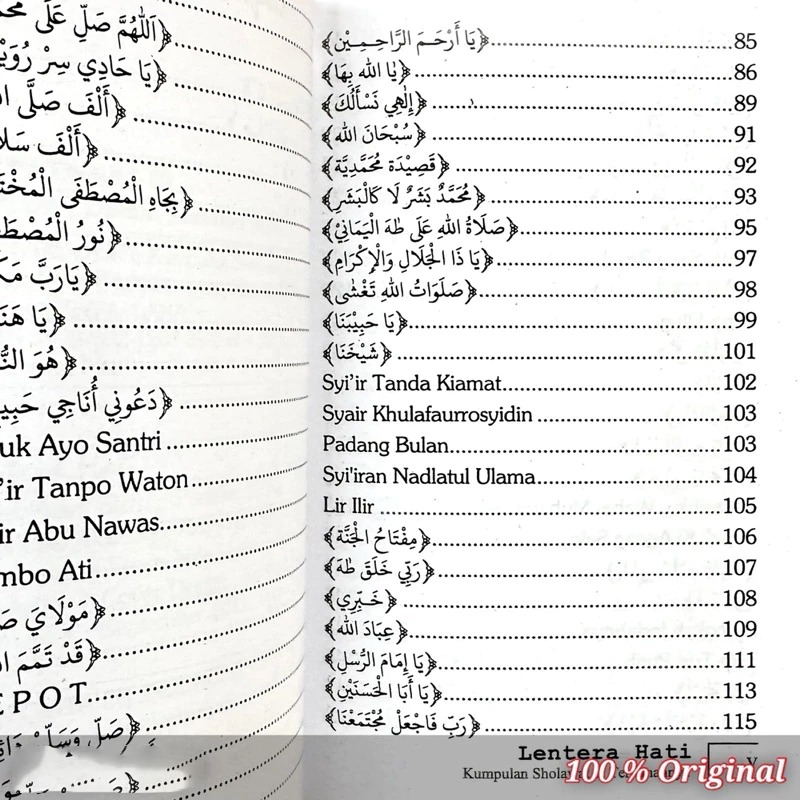 اَللّٰهُمَّ صَلِّ عَلَى
يَا حَادِي سِرْ رُوَيْدًا
﴿أَلْفَ صَلَّى
﴿أَلْفَ سَلَا
﴿بِجَاهِ الْمُصْطَفَى الْمُخْتَا
﴿نُورُ الْمُصْطَفَ
﴿يَارَبَّ مَكَّ
﴿يَا هَنَا
﴿هُوَ النُّ
﴿دَعُونِي أُنَاجِي حَبِيـ
uk Ayo Santri
'ir Tanpo Waton
ir Abu Nawas
mbo Ati
﴿مَوْلَايَ صَـ
﴿قَدْ تَمَّمَ
E P O T
﴿يَا أَرْحَمَ الرَّاحِمِيْنَ﴾ 85
﴿يَا اللّٰه بِهَا﴾ 86
﴿إِلٰهِي نَسْأَلُكَ﴾ 89
﴿سُبْحَانَ اللّٰه﴾ 91
﴿قَصِيْدَة مُحَمَّدِيَّة﴾ 92
﴿مُحَمَّدٌ بَشَرٌ لَا كَالْبَشَرِ﴾ 93
﴿صَلَاةُ اللّٰهِ عَلَى طٰهَ الْيَمَانِيْ﴾ 95
﴿يَا ذَا الْجَلَالِ وَالْإِكْرَامِ﴾ 97
﴿صَلَوَاتُ اللّٰهِ تَغْشٰى﴾ 98
﴿يَا حَبِيْبَنَا﴾ 99
﴿شَيْخَنَا﴾ 101
Syi'ir Tanda Kiamat 102
Syair Khulafaurrosyidin 103
Padang Bulan 103
Syi'iran Nadlatul Ulama 104
Lir Ilir 105
﴿مِفْتَاحُ الْجَنَّة﴾ 106
﴿رَبِّي خَلَقَ طٰهَ﴾ 107
﴿خَبِّرِي﴾ 108
﴿عِبَادَ اللّٰه﴾ 109
﴿يَا إِمَامَ الرُّسْلِ﴾ 111
﴿يَا أَبَا الْحَسَنَيْنِ﴾ 113
﴿رَبِّ فَاجْعَلْ مُجْتَمَعْنَا﴾ 115
Lentera Hati
Kumpulan
v
100 % Original